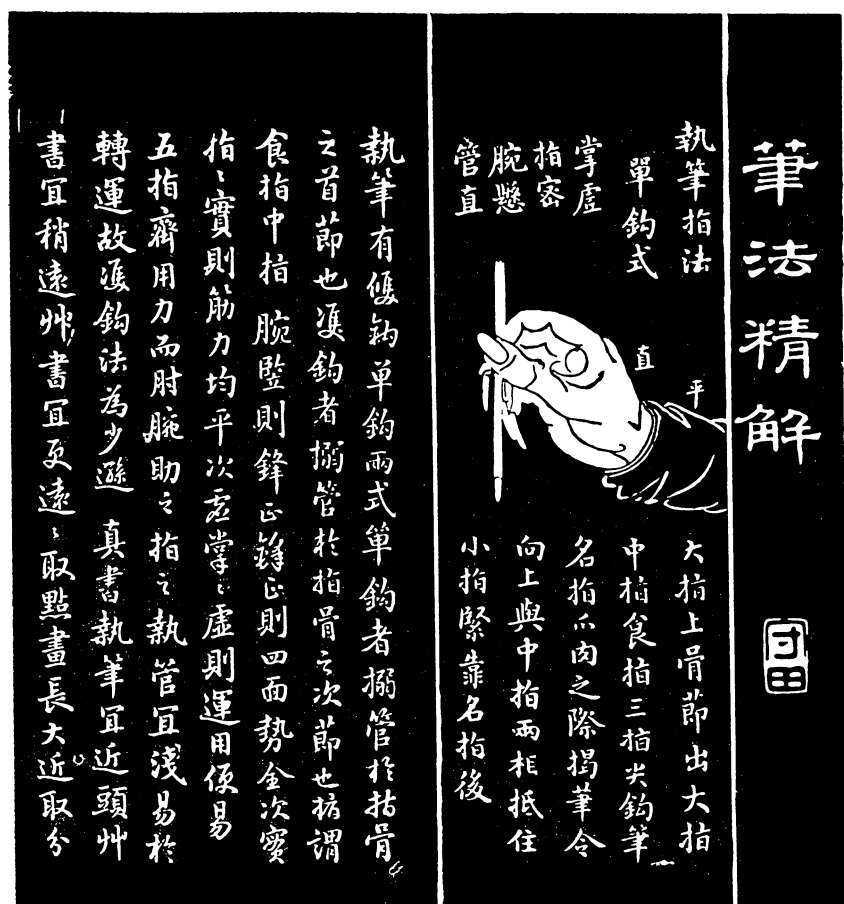 筆法精解
執筆指法
單鈎式
掌虛
指密
腕懸
管直
直
平
大指上骨節出大指
中指食指三指尖鈎筆
名指爪肉之際揭筆令
向上與中指兩相抵住
小指緊靠名指後
執筆有雙鈎单鈎兩式单鈎者搦管於指骨
之首節也雙鈎者搦管於指骨之次節也指謂
食指中指 腕竪則鋒正鋒正則四面勢全次實
指〻實則筋力均平次虛掌〻虛則運用便易
五指齊用力而肘腕助之指之執管宜淺易於
轉運故雙鈎法為少遜 真書執筆宜近頭艸
書宜稍遠艸〻書宜更遠〻取點畫長大近取分